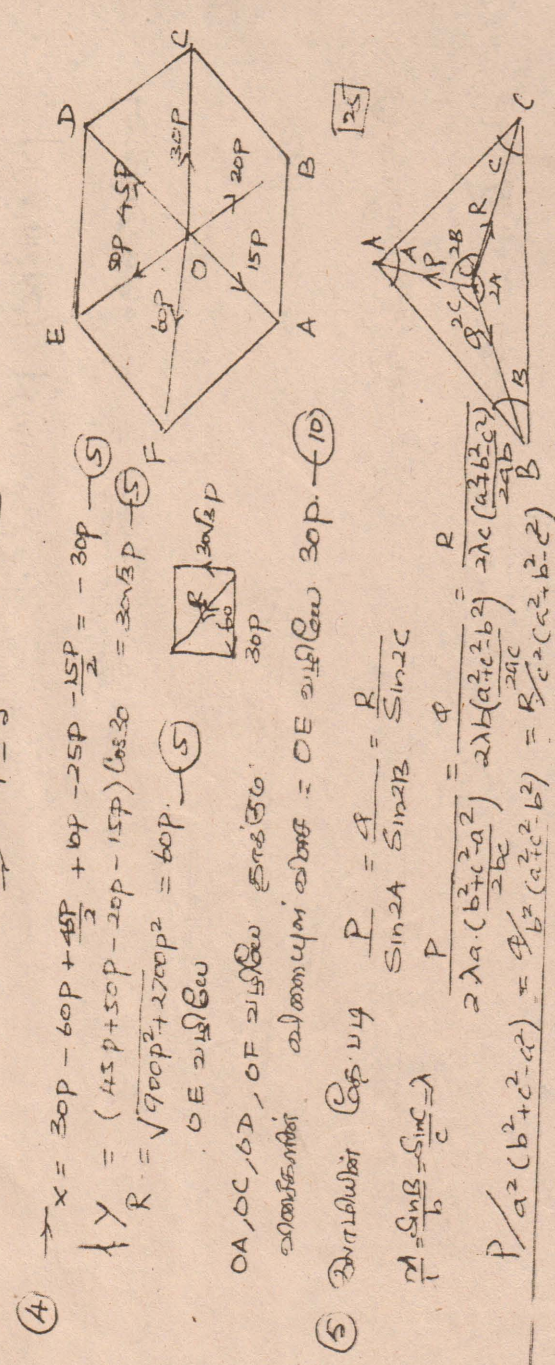 ④ → X = 30p - 60p + 45p/2 + 10p - 25p - 15p/2 = -30p —⑤
↑ Y = (45p + 50p - 20p - 15p) Cos30 = 30√3p —⑤
R = √900p² + 2700p² = 60p. —⑤
OE வழியே
R
60
30√3p
30p
OA, OC, OD, OF வழியே தாக்கும்
விசைகளின் விளையுள் விசை = OE வழியே 30p. —⑩
A
B
C
D
E
F
O
15p
20p
30p
45p
50p
60p
25
⑤ P/Sin2A = Q/Sin2B = R/Sin2C
SinB/b = SinC/c = λ
P/2λa.(b²+c²-a²/2bc) = Q/2λb(a²+c²-b²/2ac) = R/2λc(a²+b²-c²/2ab)
P/a²(b²+c²-a²) = Q/b²(a²+c²-b²) = R/c²(a²+b²-c²)
A
A
P
2C
2B
Q
2A
R
B
B
C
C